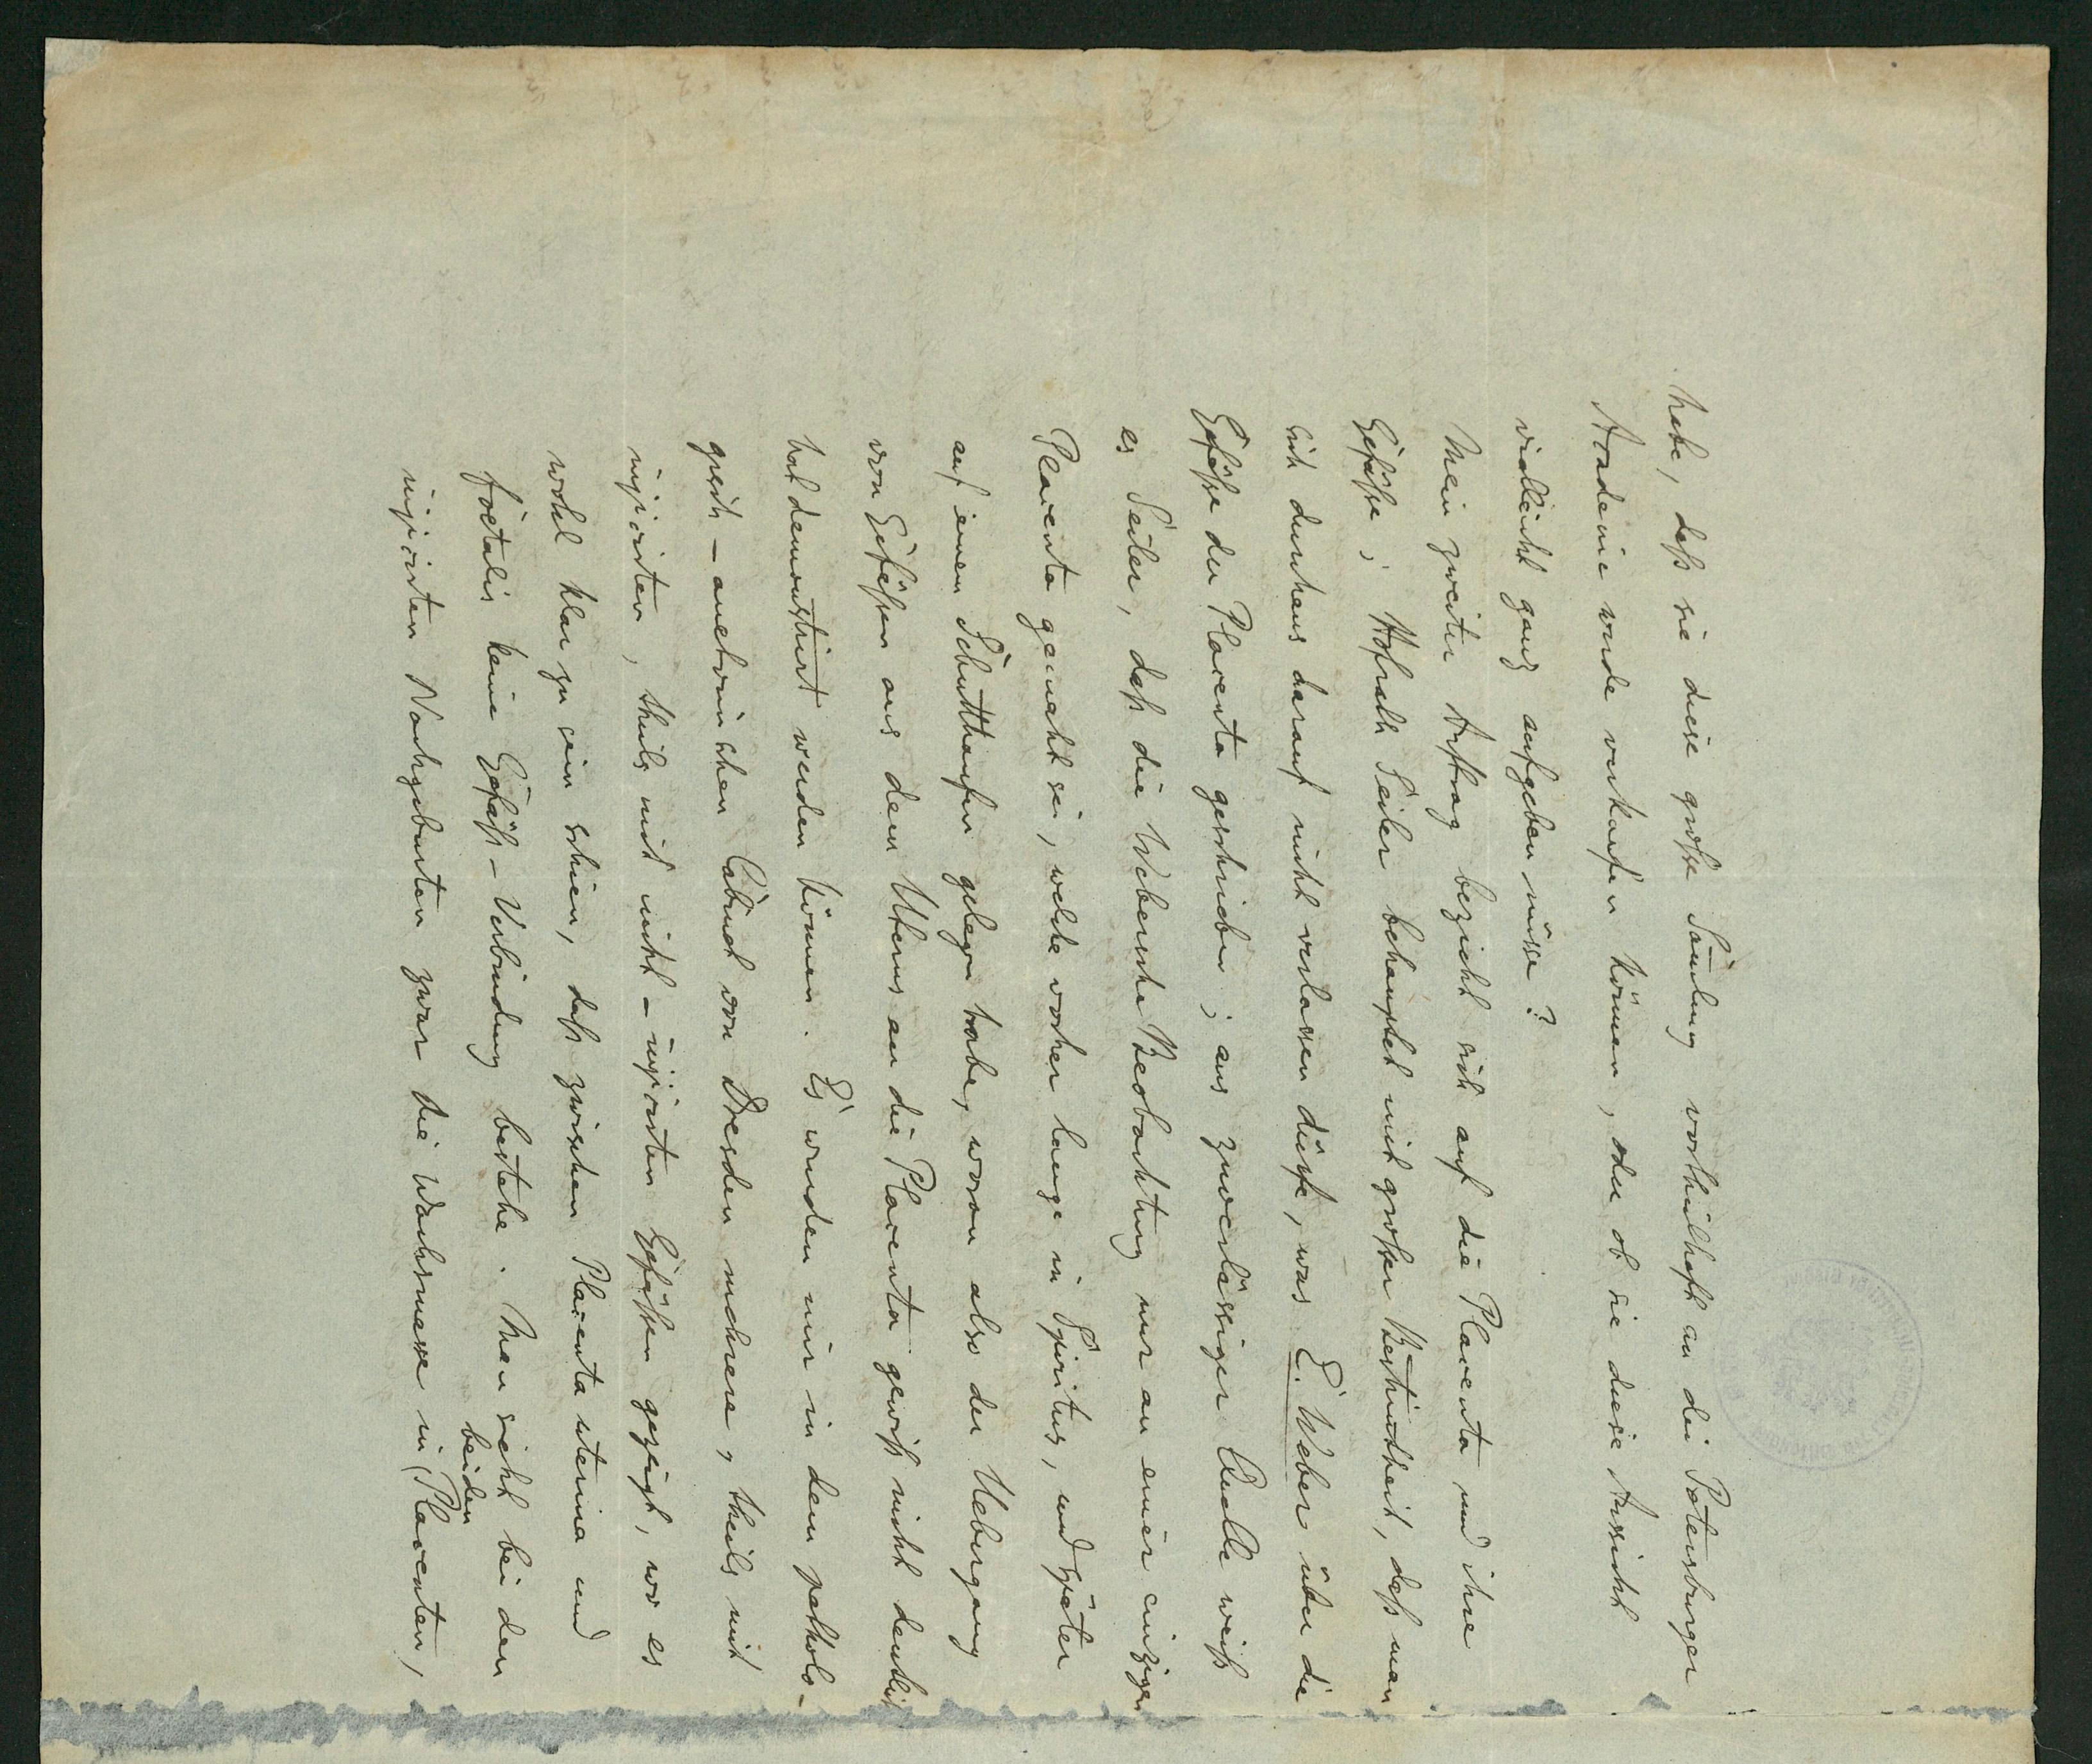 habe, daß sie diese große Sam̄lung vortheilhaft an die Petersburger
Academie werde verkaufen können, oder ob sie diese Aussicht
vielleicht ganz aufgeben müsse?
Mein zweiter Auftrag bezieht sich auf die Placenta und ihre
Gefäße; Hofrath Seiler behauptet mit großer Bestim̄theit, daß man
sich durchaus darauf nicht verlassen dürfe, was E. Weber über die
Gefäße der Placenta geschrieben; aus zuverlässiger Quelle weiß
es Seiler, daß die Webersche Beobachtung nur an einer einzigen
Placenta gemacht sei, welche vorher lange in Spiritus, und später
auf einem Schutthaufen gelegen habe, woran also der Uebergang
von Gefäßen aus dem Uterus an die Placenta gewiß nicht deutlich
hat demonstrirt werden können. Es wurden mir in dem patholo-
gisch-anatomischen Cabinet von Dresden mehrere, theils mit
injicirten, theils mit nicht-injicirten Gefäßen gezeigt, wo es
wohl klar zu sein schien, daß zwischen Placenta uterina und
foetalis keine Gefäß-Verbindung bestehe. Man sieht bei den
injicirten Nachgeburten zwar die Wachsmasse in beiden Placenten,